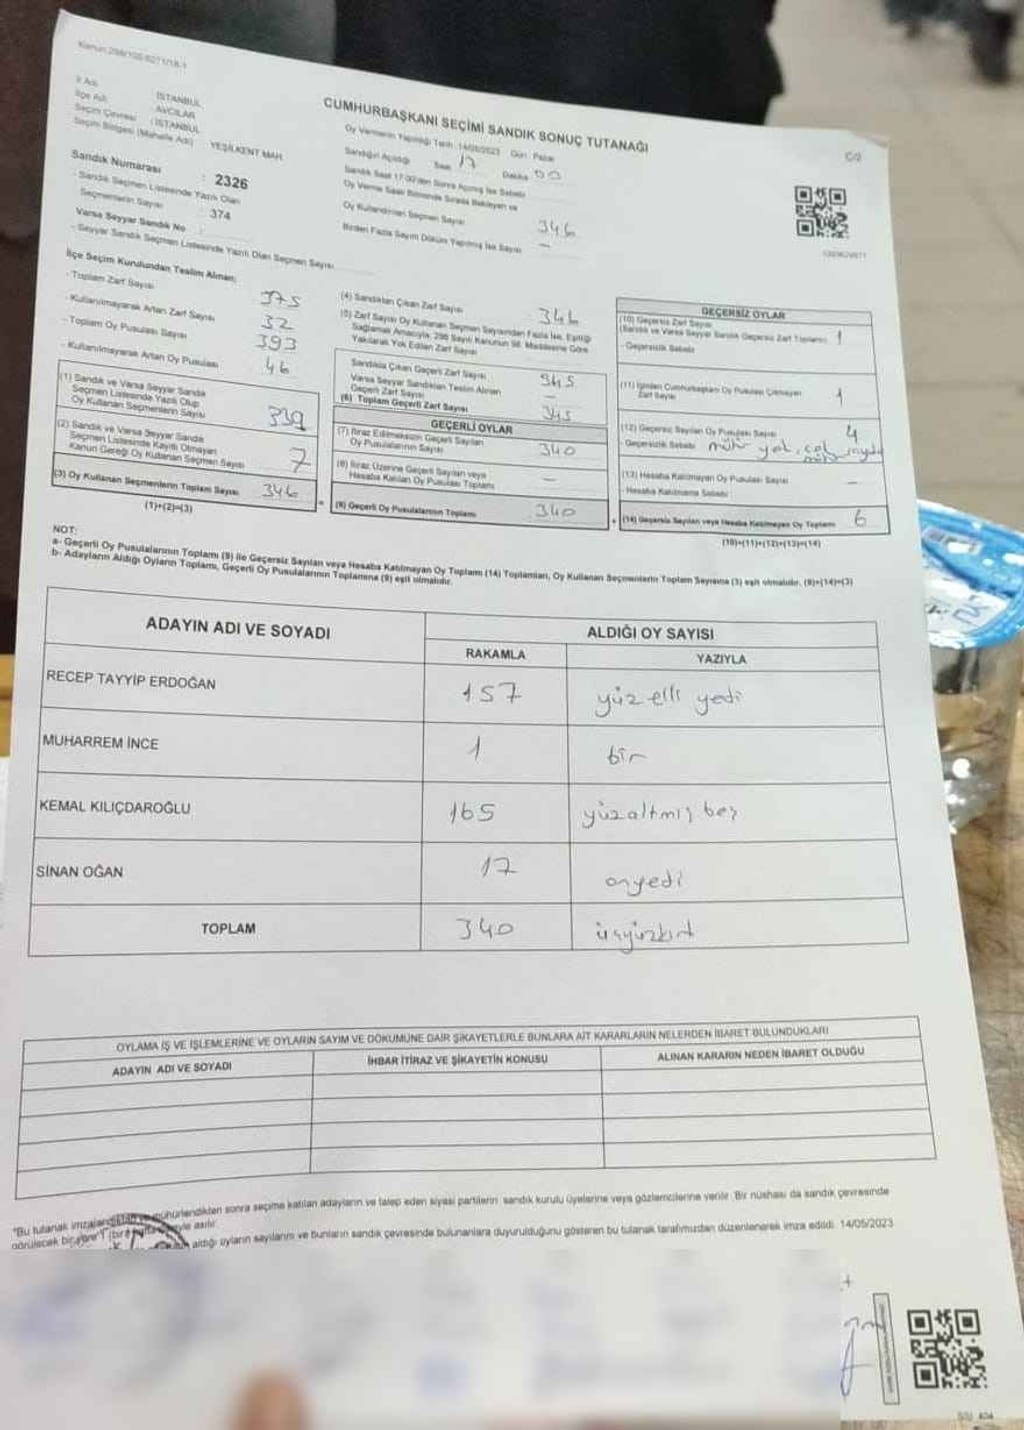 Kanun:298/105/6271/18-1
İl Adı : İSTANBUL
İlçe Adı : AVCILAR
Seçim Çevresi : İSTANBUL
Seçim Bölgesi (Mahalle Adı) YEŞİLKENT MAH.
Sandık Numarası : 2326
- Sandık Seçmen Listesinde Yazılı Olan
Seçmenlerin Sayısı : 374
Varsa Seyyar Sandık No :
- Seyyar Sandık Seçmen Listesinde Yazılı Olan Seçmen Sayısı
CUMHURBAŞKANI SEÇİMİ SANDIK SONUÇ TUTANAĞI
Oy Vermenin Yapıldığı Tarih: 14/05/2023 Gün: Pazar
Sandığın Açıldığı Saat 17 Dakika 00
Sandık Saat 17:00'den Sonra Açılmış İse Sebebi
Oy Verme Saati Bitiminde Sırada Bekleyen ve
Oy Kullandırılan Seçmen Sayısı 346
Birden Fazla Sayım Döküm Yapılmış İse Sayısı —
İlçe Seçim Kurulundan Teslim Alınan;
- Toplam Zarf Sayısı 375
- Kullanılmayarak Artan Zarf Sayısı 32
- Toplam Oy Pusulası Sayısı 393
- Kullanılmayarak Artan Oy Pusulası 46
(1) Sandık ve Varsa Seyyar Sandık
Seçmen Listesinde Yazılı Olup
Oy Kullanan Seçmenlerin Sayısı 339
(2) Sandık ve Varsa Seyyar Sandık
Seçmen Listesinde Kayıtlı Olmayan
Kanun Gereği Oy Kullanan Seçmen Sayısı 7
(3) Oy Kullanan Seçmenlerin Toplam Sayısı 346
(1)+(2)=(3)
(4) Sandıktan Çıkan Zarf Sayısı 346
(5) Zarf Sayısı Oy Kullanan Seçmen Sayısından Fazla İse, Eşitliği
Sağlamak Amacıyla, 298 Sayılı Kanunun 98. Maddesine Göre
Yakılarak Yok Edilen Zarf Sayısı
Sandıkta Çıkan Geçerli Zarf Sayısı 345
Varsa Seyyar Sandıktan Teslim Alınan
Geçerli Zarf Sayısı —
(6) Toplam Geçerli Zarf Sayısı 345
GEÇERLİ OYLAR
(7) İtiraz Edilmeksizin Geçerli Sayılan
Oy Pusulalarının Sayısı 340
(8) İtiraz Üzerine Geçerli Sayılan veya
Hesaba Katılan Oy Pusulası Toplamı —
(9) Geçerli Oy Pusulalarının Toplamı 340
GEÇERSİZ OYLAR
(10) Geçersiz Zarf Sayısı
(Sandık ve Varsa Seyyar Sandık Geçersiz Zarf Toplamı) 1
- Geçersizlik Sebebi
(11) İçinden Cumhurbaşkanı Oy Pusulası Çıkmayan
Zarf Sayısı 1
(12) Geçersiz Sayılan Oy Pusulası Sayısı 4
- Geçersizlik Sebebi mühür yok, çok
(13) Hesaba Katılmayan Oy Pusulası Sayısı —
- Hesaba Katılmama Sebebi
(14) Geçersiz Sayılan veya Hesaba Katılmayan Oy Toplamı 6
(10)+(11)+(12)+(13)=(14)
NOT:
a- Geçerli Oy Pusulalarının Toplamı (9) ile Geçersiz Sayılan veya Hesaba Katılmayan Oy Toplamı (14) Toplamları, Oy Kullanan Seçmenlerin Toplam Sayısına (3) eşit olmalıdır. (9)+(14)=(3)
b- Adayların Aldığı Oyların Toplamı, Geçerli Oy Pusulalarının Toplamına (9) eşit olmalıdır.
ADAYIN ADI VE SOYADI ALDIĞI OY SAYISI
RAKAMLA YAZIYLA
RECEP TAYYİP ERDOĞAN 157 yüz elli yedi
MUHARREM İNCE 1 bir
KEMAL KILIÇDAROĞLU 165 yüzaltmış beş
SİNAN OĞAN 17 onyedi
TOPLAM 340 üçyüzkırk
OYLAMA İŞ VE İŞLEMLERİNE VE OYLARIN SAYIM VE DÖKÜMÜNE DAİR ŞİKAYETLERLE BUNLARA AİT KARARLARIN NELERDEN İBARET BULUNDUKLARI
ADAYIN ADI VE SOYADI İHBAR İTİRAZ VE ŞİKAYETİN KONUSU ALINAN KARARIN NEDEN İBARET OLDUĞU
"Bu tutanak imzalandıktan ve mühürlendikten sonra seçime katılan adayların ve talep eden siyasi partilerin sandık kurulu üyelerine veya gözlemcilerine verilir. Bir nüshası da sandık çevresinde
görülecek bir yere asılır.
aldığı oyların sayılarını ve bunların sandık çevresinde bulunanlara duyurulduğunu gösteren bu tutanak tarafımızdan düzenlenerek imza edildi. 14/05/2023